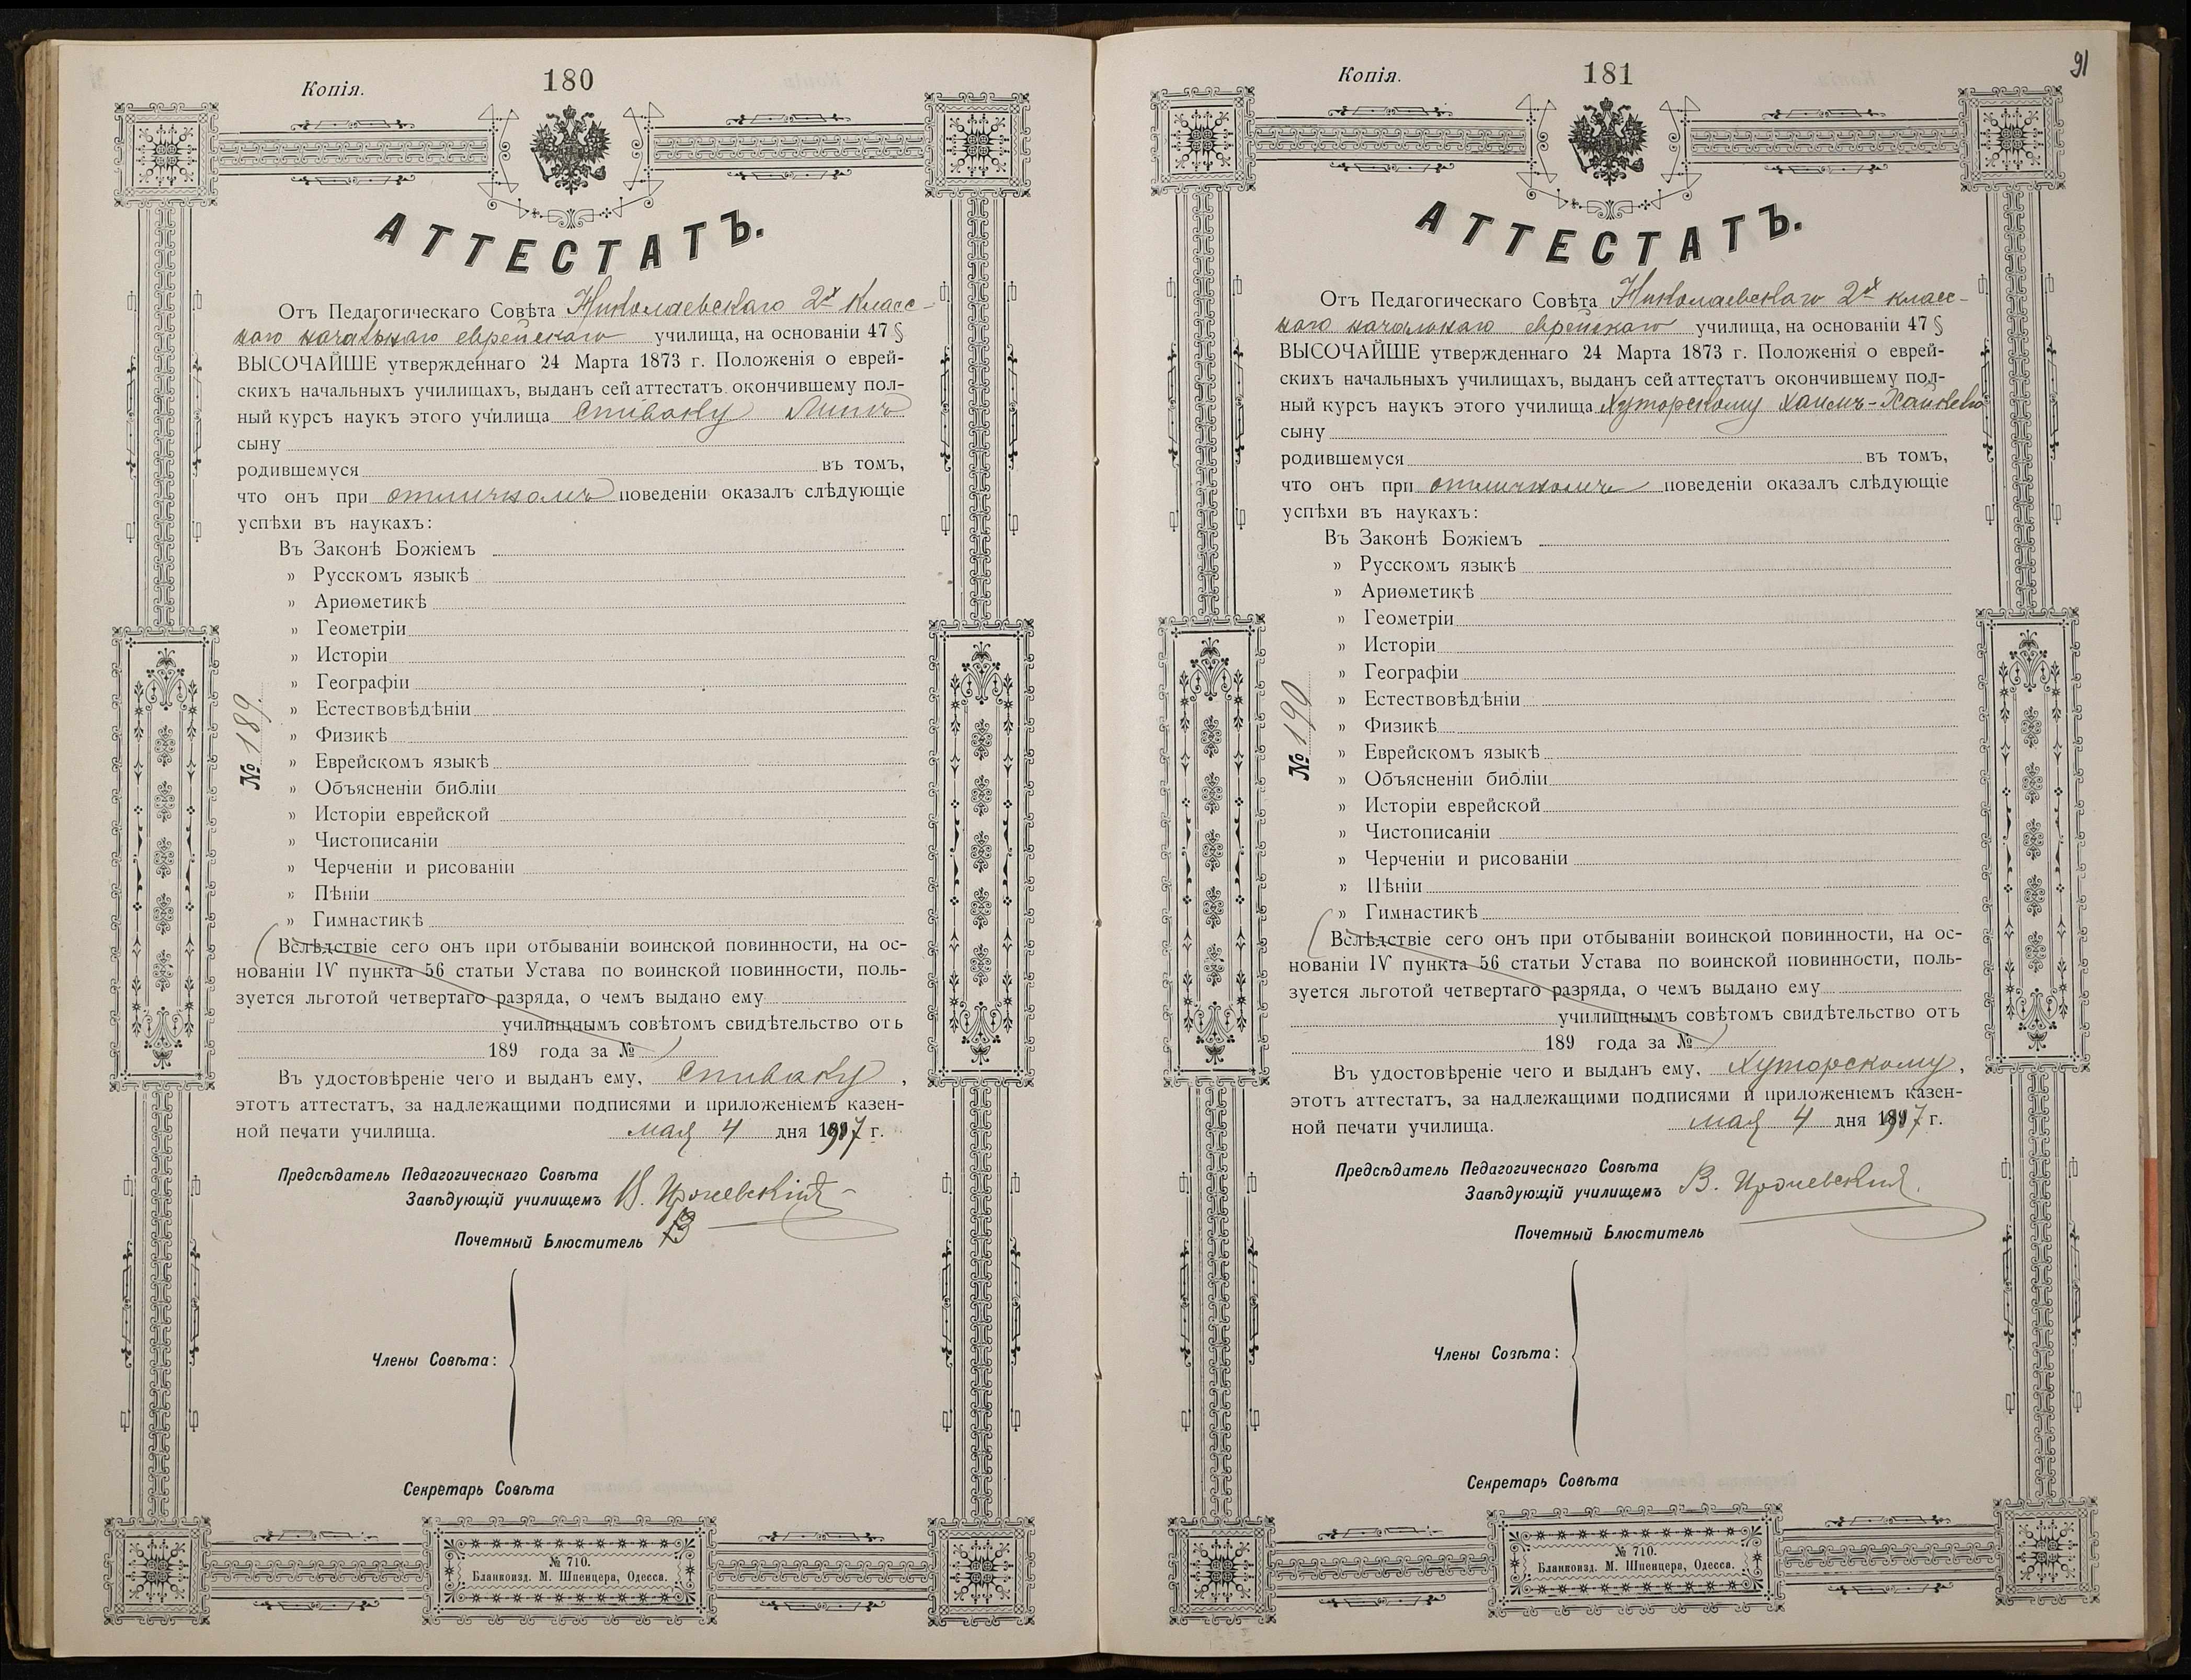 Копія.
180
АТТЕСТАТЪ.
Отъ Педагогическаго Совѣта Николаевскаго 2х Класс-
наго начальнаго еврейскаго училища, на основаніи 47 §
ВЫСОЧАЙШЕ утвержденнаго 24 Марта 1873 г. Положенія о еврей-
скихъ начальныхъ училищахъ, выданъ сей аттестатъ окончившему пол-
ный курсъ наукъ этого училища Спиваку
сыну
родившемуся въ томъ,
что онъ при отличномъ поведеніи оказалъ слѣдующіе
успѣхи въ наукахъ:
Въ Законѣ Божіемъ
» Русскомъ языкѣ
» Ариѳметикѣ
» Геометріи
» Исторіи
» Географіи
» Естествовѣдѣніи
» Физикѣ
» Еврейскомъ языкѣ
» Объясненіи библіи
» Исторіи еврейской
» Чистописаніи
» Черченіи и рисованіи
» Пѣніи
» Гимнастикѣ
№ 189.
Вслѣдствіе сего онъ при отбываніи воинской повинности, на ос-
нованіи IV пункта 56 статьи Устава по воинской повинности, поль-
зуется льготой четвертаго разряда, о чемъ выдано ему
училищнымъ совѣтомъ свидѣтельство отъ
189 года за №
Въ удостовѣреніе чего и выданъ ему, Спиваку,
этотъ аттестатъ, за надлежащими подписями и приложеніемъ казен-
ной печати училища. мая 4 дня 1907 г.
Предсѣдатель Педагогическаго Совѣта
Завѣдующій училищемъ В.
Почетный Блюститель
Члены Совѣта:
Секретарь Совѣта
№ 710.
Бланкоизд. М. Шпенцера, Одесса.
91
Копія.
181
АТТЕСТАТЪ.
Отъ Педагогическаго Совѣта Николаевскаго 2х класс-
наго начальнаго еврейскаго училища, на основаніи 47 §
ВЫСОЧАЙШЕ утвержденнаго 24 Марта 1873 г. Положенія о еврей-
скихъ начальныхъ училищахъ, выданъ сей аттестатъ окончившему пол-
ный курсъ наукъ этого училища Хуторскому Хаимъ-
сыну
родившемуся въ томъ,
что онъ при отличномъ поведеніи оказалъ слѣдующіе
успѣхи въ наукахъ:
Въ Законѣ Божіемъ
» Русскомъ языкѣ
» Ариѳметикѣ
» Геометріи
» Исторіи
» Географіи
» Естествовѣдѣніи
» Физикѣ
» Еврейскомъ языкѣ
» Объясненіи библіи
» Исторіи еврейской
» Чистописаніи
» Черченіи и рисованіи
» Пѣніи
» Гимнастикѣ
№ 190
Вслѣдствіе сего онъ при отбываніи воинской повинности, на ос-
нованіи IV пункта 56 статьи Устава по воинской повинности, поль-
зуется льготой четвертаго разряда, о чемъ выдано ему
училищнымъ совѣтомъ свидѣтельство отъ
189 года за №
Въ удостовѣреніе чего и выданъ ему, Хуторскому,
этотъ аттестатъ, за надлежащими подписями и приложеніемъ казен-
ной печати училища. мая 4 дня 1907 г.
Предсѣдатель Педагогическаго Совѣта
Завѣдующій училищемъ В.
Почетный Блюститель
Члены Созѣта:
Секретарь Совѣта
№ 710.
Бланкоизд. М. Шпенцера, Одесса.